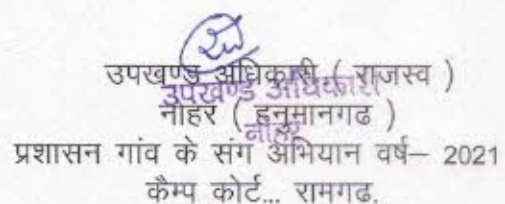 उपखण्ड अधिकारी ( राजस्व )
उपखण्ड अधिकारी
नोहर ( हनुमानगढ )
नोहर
प्रशासन गांव के संग अभियान वर्ष– 2021
कैम्प कोर्ट... रामगढ.